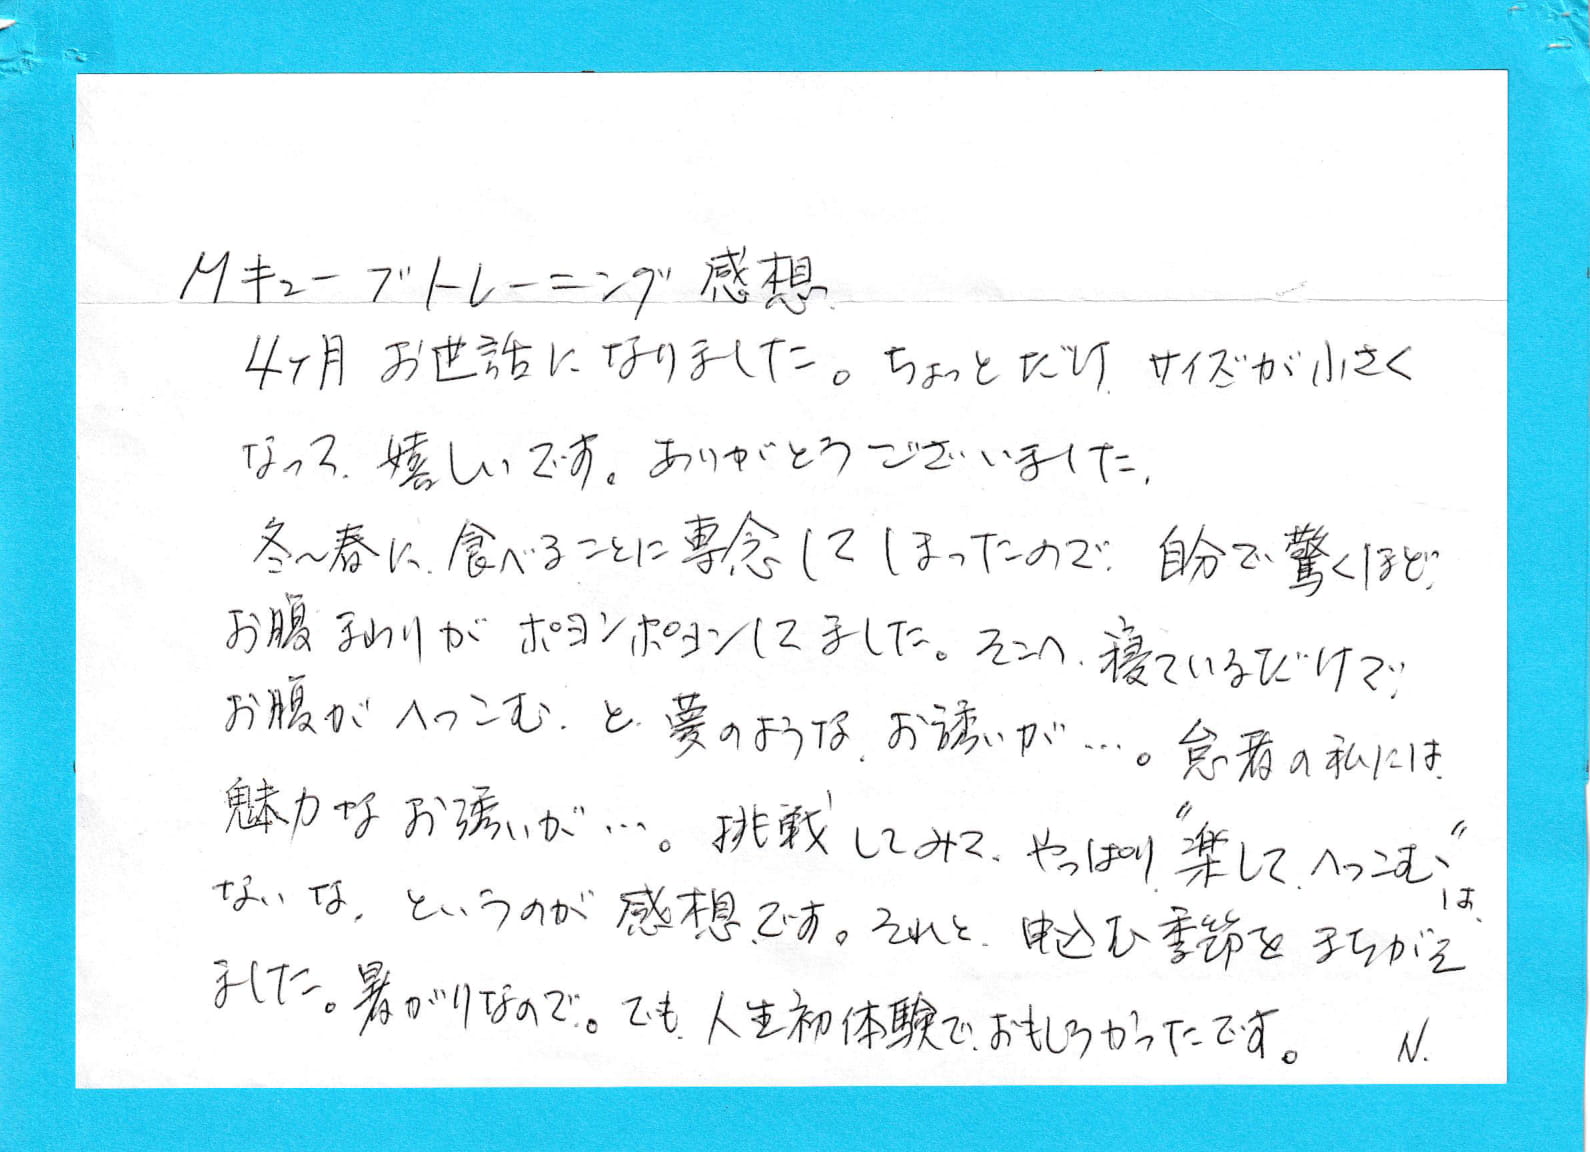 Mキューブトレーニング感想
4ヶ月 お世話になりました。ちょっとだけ サイズが小さく
なって、嬉しいです。ありがとうございました。
冬〜春に、食べることに専念してしまったので、自分で驚くほど、
お腹まわりがポヨンポヨンしてました。そこへ、寝ているだけで、
お腹がへっこむ、と、夢のような、お誘いが…。怠者の私には、
魅力なお誘いが…。挑戦してみて、やっぱり“楽して、へっこむ”は、
ないな、というのが感想です。それと、申込む季節をまちがえ
ました。暑がりなので。でも、人生初体験で、おもしろかったです。 N.